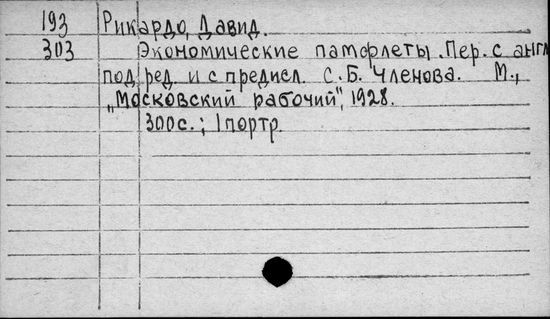 193 Рикардо, Давид.
303 Экономические памфлеты. Пер. с англ
под ред. и с предисл. С.Б. Членова. М.,
„Московский рабочий", 1928.
300с.; 1 портр.